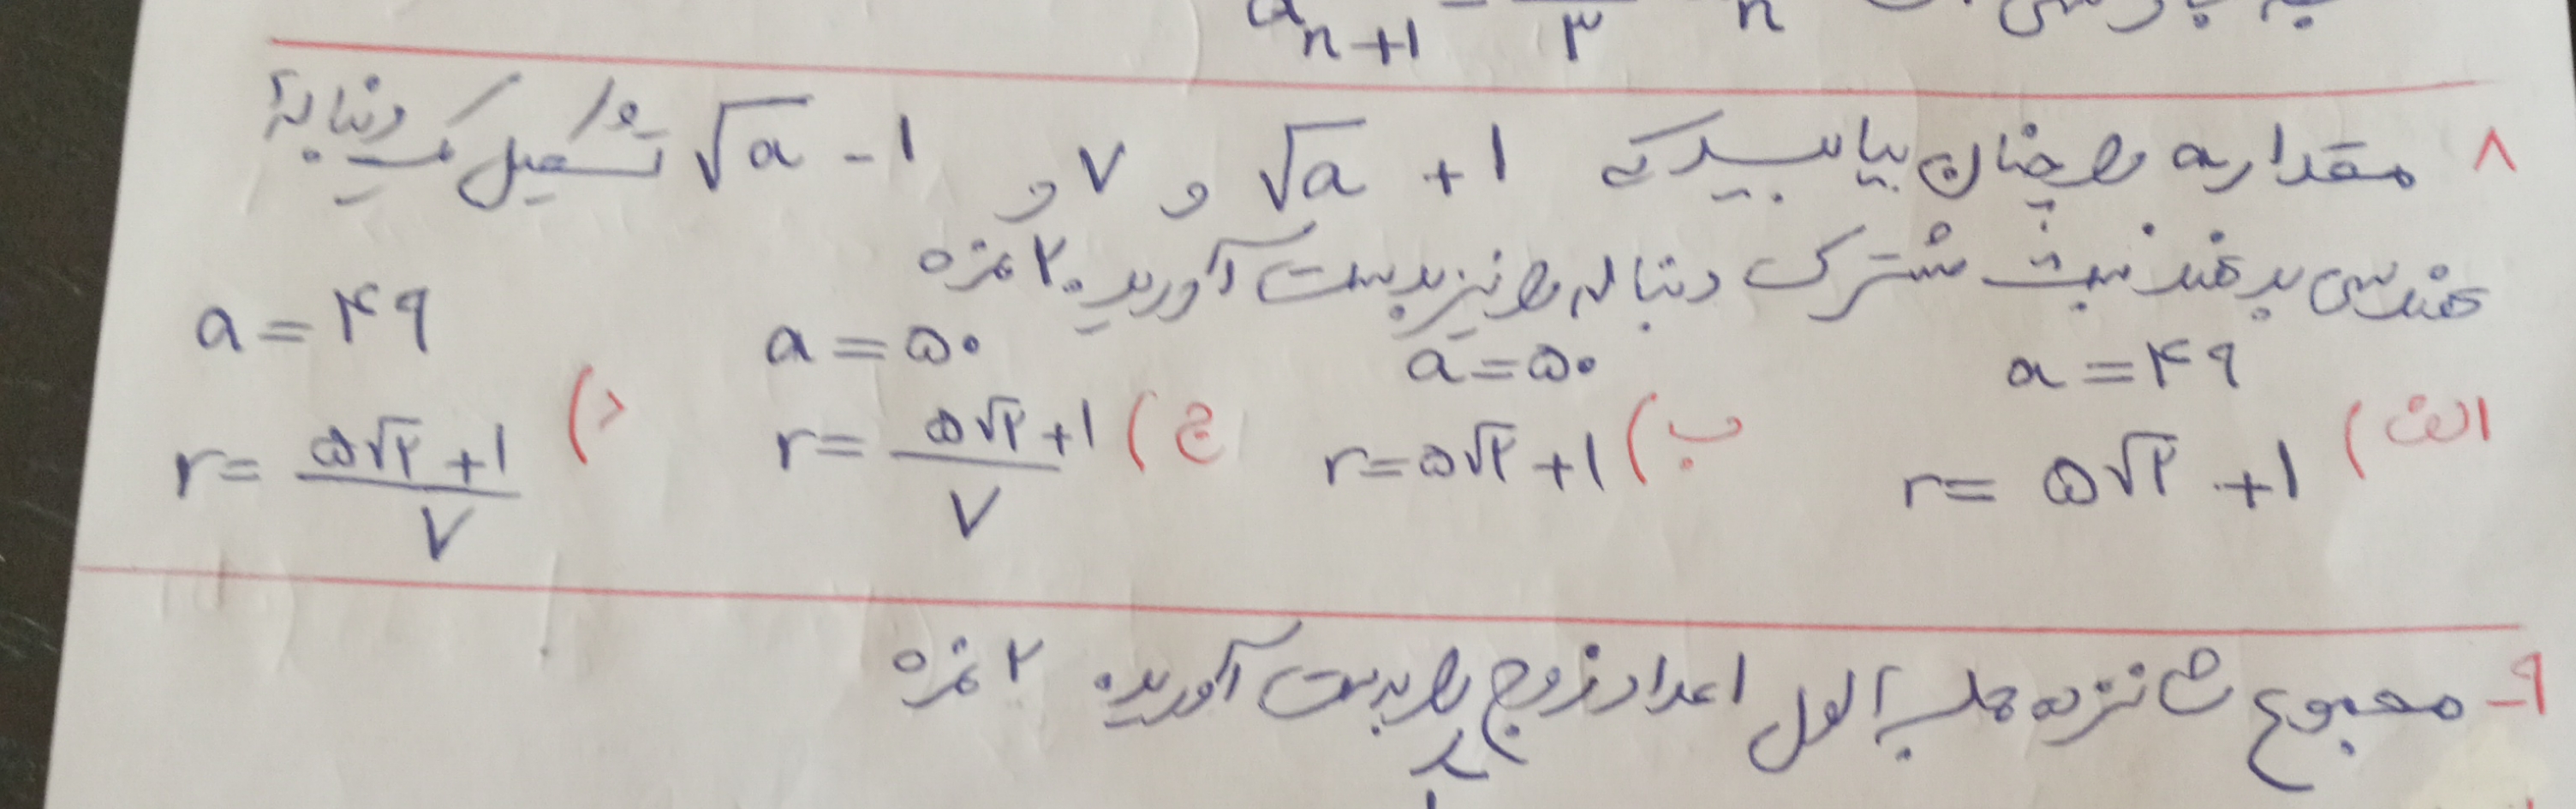 a n+1 = ۳ n
۸ مقدار a را چنان بیابید که √a + 1 و ۷ و √a - 1 تشکیل یک دنبالهٔ
هندسی بدهند نسبت مشترک دنباله را نیز بدست آورید. ۲ نمره
الف) a = ۴۹ r = ۵√۲ + 1
ب) a = ۵۰ r = ۵√۲ + 1
ج) a = ۵۰ r = (۵√۲ + 1)/۷
د) a = ۴۹ r = (۵√۲ + 1)/۷
۹- مجموع شانزده جمله اول اعداد زوج را بدست آورید. ۲ نمره